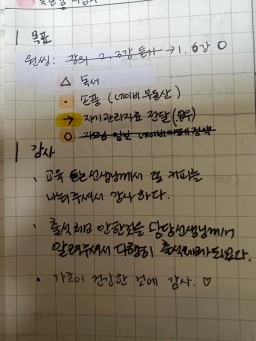 목표
원씽: 강의 2,3강 듣기 → 1.6강 O
△ 독서
• 손품 (네이버 부동산)
→ 자기관리자료 전달
감사
• 교육 듣는 선생님께서 커피를
나눠주셔서 감사하다.
• 출석체크 안한것을 담당선생님께서
알려주셔서 다행히 출석체크가 되었다.
• 가족이 건강한 것에 감사. ♡